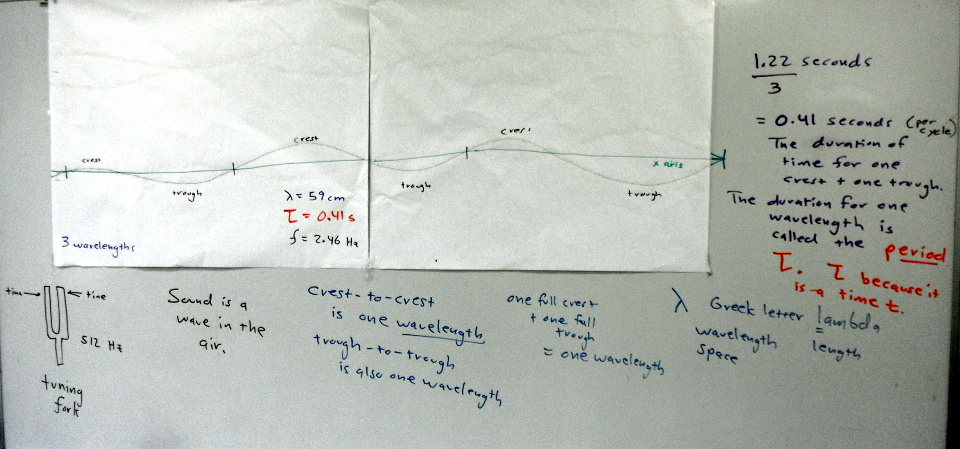 crest
trough
crest
λ = 59 cm
τ = 0.41 s
f = 2.46 Hz
3 wavelengths
trough
crest
x axis
trough
1.22 seconds
3
= 0.41 seconds (per
cycle)
The duration of
time for one
crest + one trough.
The duration for one
wavelength is
called the period
τ. τ because it
is a time t.
tine
tine
512 Hz
tuning
fork
Sound is a
wave in the
air.
Crest-to-crest
is one wavelength
trough-to-trough
is also one wavelength
one full crest
+ one full
trough
= one wavelength
λ Greek letter lambda
wavelength = length
space